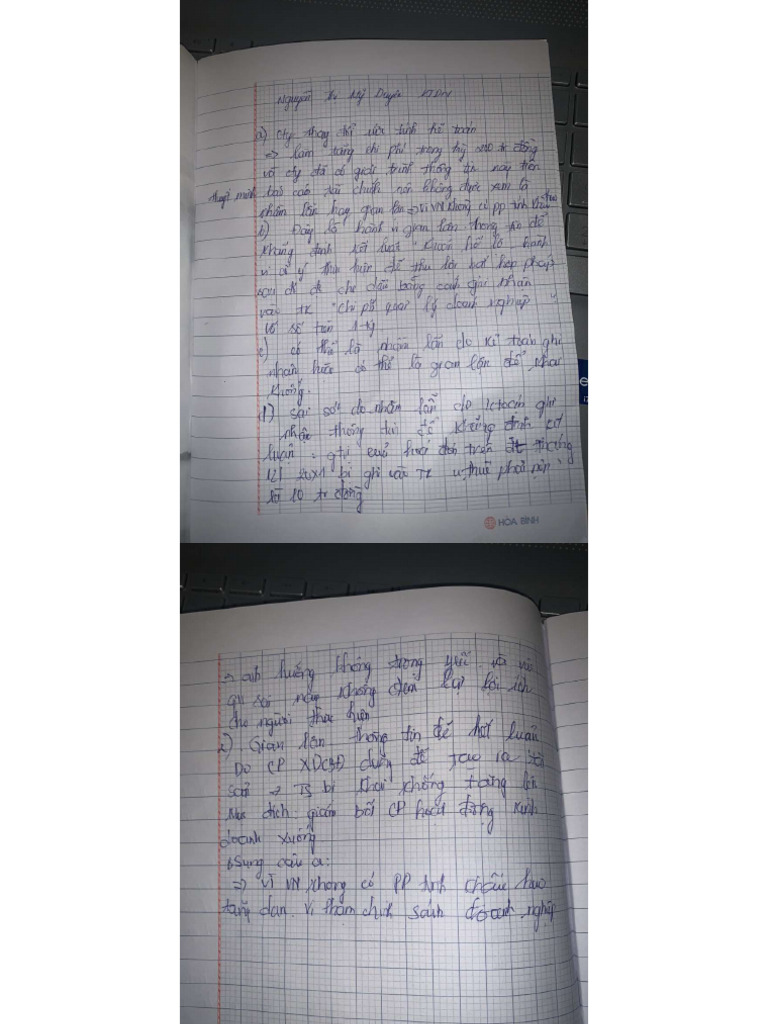 Nguyễn Thị Mỹ Duyên
a) Cty thay đổi ước tính kế toán
=> làm tăng chi phí trong kỳ 200 tr đồng
và cty đã có giải trình thông tin này trên
thuyết minh báo cáo tài chính nên không được xem là
nhầm lẫn hay gian lận => Vì VN không có pp tính khấu hao
b) Đây là hành vi gian lận thông tin để
khẳng định kết luật "khoản hề là hành
vi cố ý thực hiện để thu lợi bất hợp pháp
sau đó đc che dấu bằng cách ghi nhận
vào TK "Chi phí quản lý doanh nghiệp"
với số tiền 1 tỷ
c) có thể là nhầm lẫn do kế toán ghi
nhận hoặc có thể là gian lận để khai
khống.
d) sai sót do nhầm lẫn do ktoán ghi
nhận thông tin để khẳng định kết
luận: gtri của hoá đơn tiền tháng
12/ 20X1 bị ghi vào TK thuế phải nộp
là 10 tr đồng
→ ảnh hưởng không trọng yếu và
sai sót này không đem lại lợi ích
cho người thực hiện
e) Gian lận thông tin để kết luận
Do CP XDCBD dùng để tạo ra tài
sản → TS bị khai khống tăng lên
Mục đích giảm bớt CP hoạt động kinh
doanh xuống
bsung câu a:
=> Vì VN không có PP tính khấu hao
tăng dần. Vi phạm chính sách doanh nghiệp
HÒA BÌNH